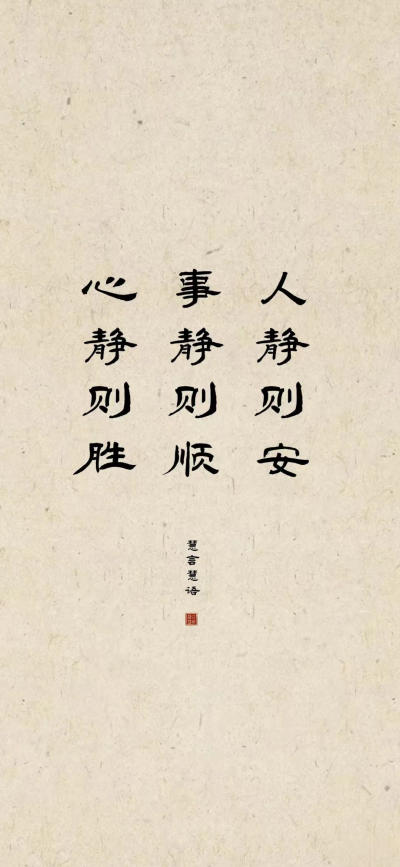 人静则安
事静则顺
心静则胜
慧言慧语